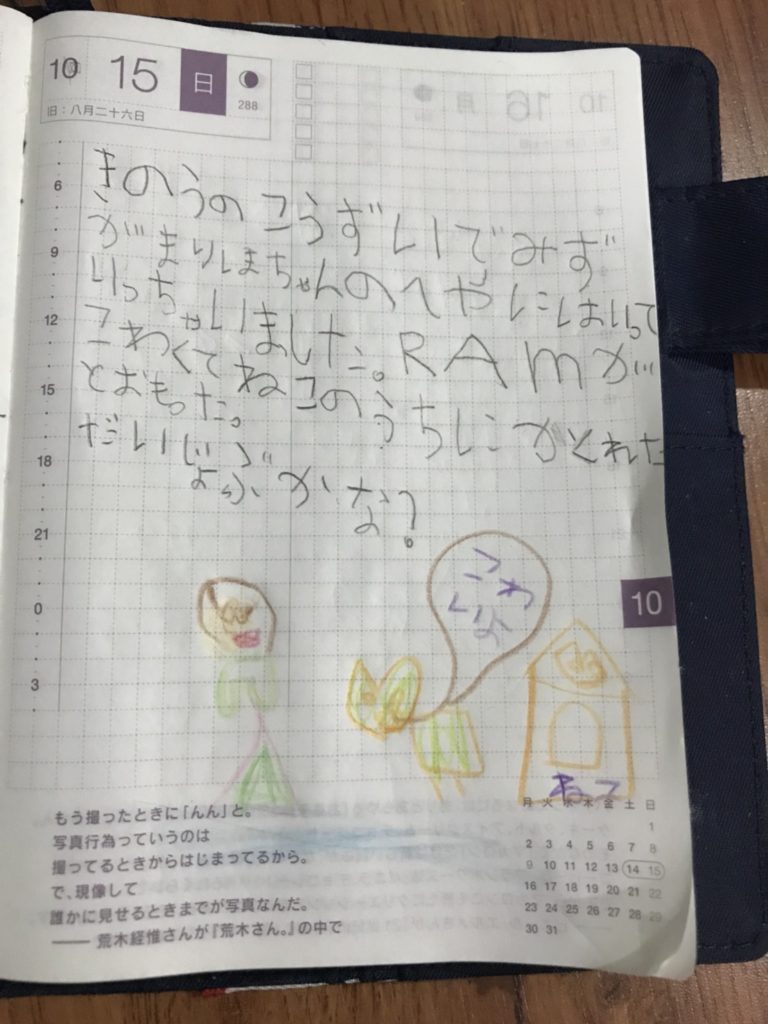 10 15 日
288
旧：八月二十六日
6
9
12
15
18
21
0
3
きのうのこうずいでみず
がまりしまちゃんのへやにはいって
いっちゃいました。RAmが
こわくてねこのうちにかくれた
とおもった。
だいじょぶかな?
こわ
くいよ
ねこ
10
もう撮ったときに「んん」と。
写真行為っていうのは
撮ってるときからはじまってるから。
で、現像して
誰かに見せるときまでが写真なんだ。
―― 荒木経惟さんが『荒木さん。』の中で
月 火 水 木 金 土 日
1
2 3 4 5 6 7 8
9 10 11 12 13 14 15
16 17 18 19 20 21 22
23 24 25 26 27 28 29
30 31